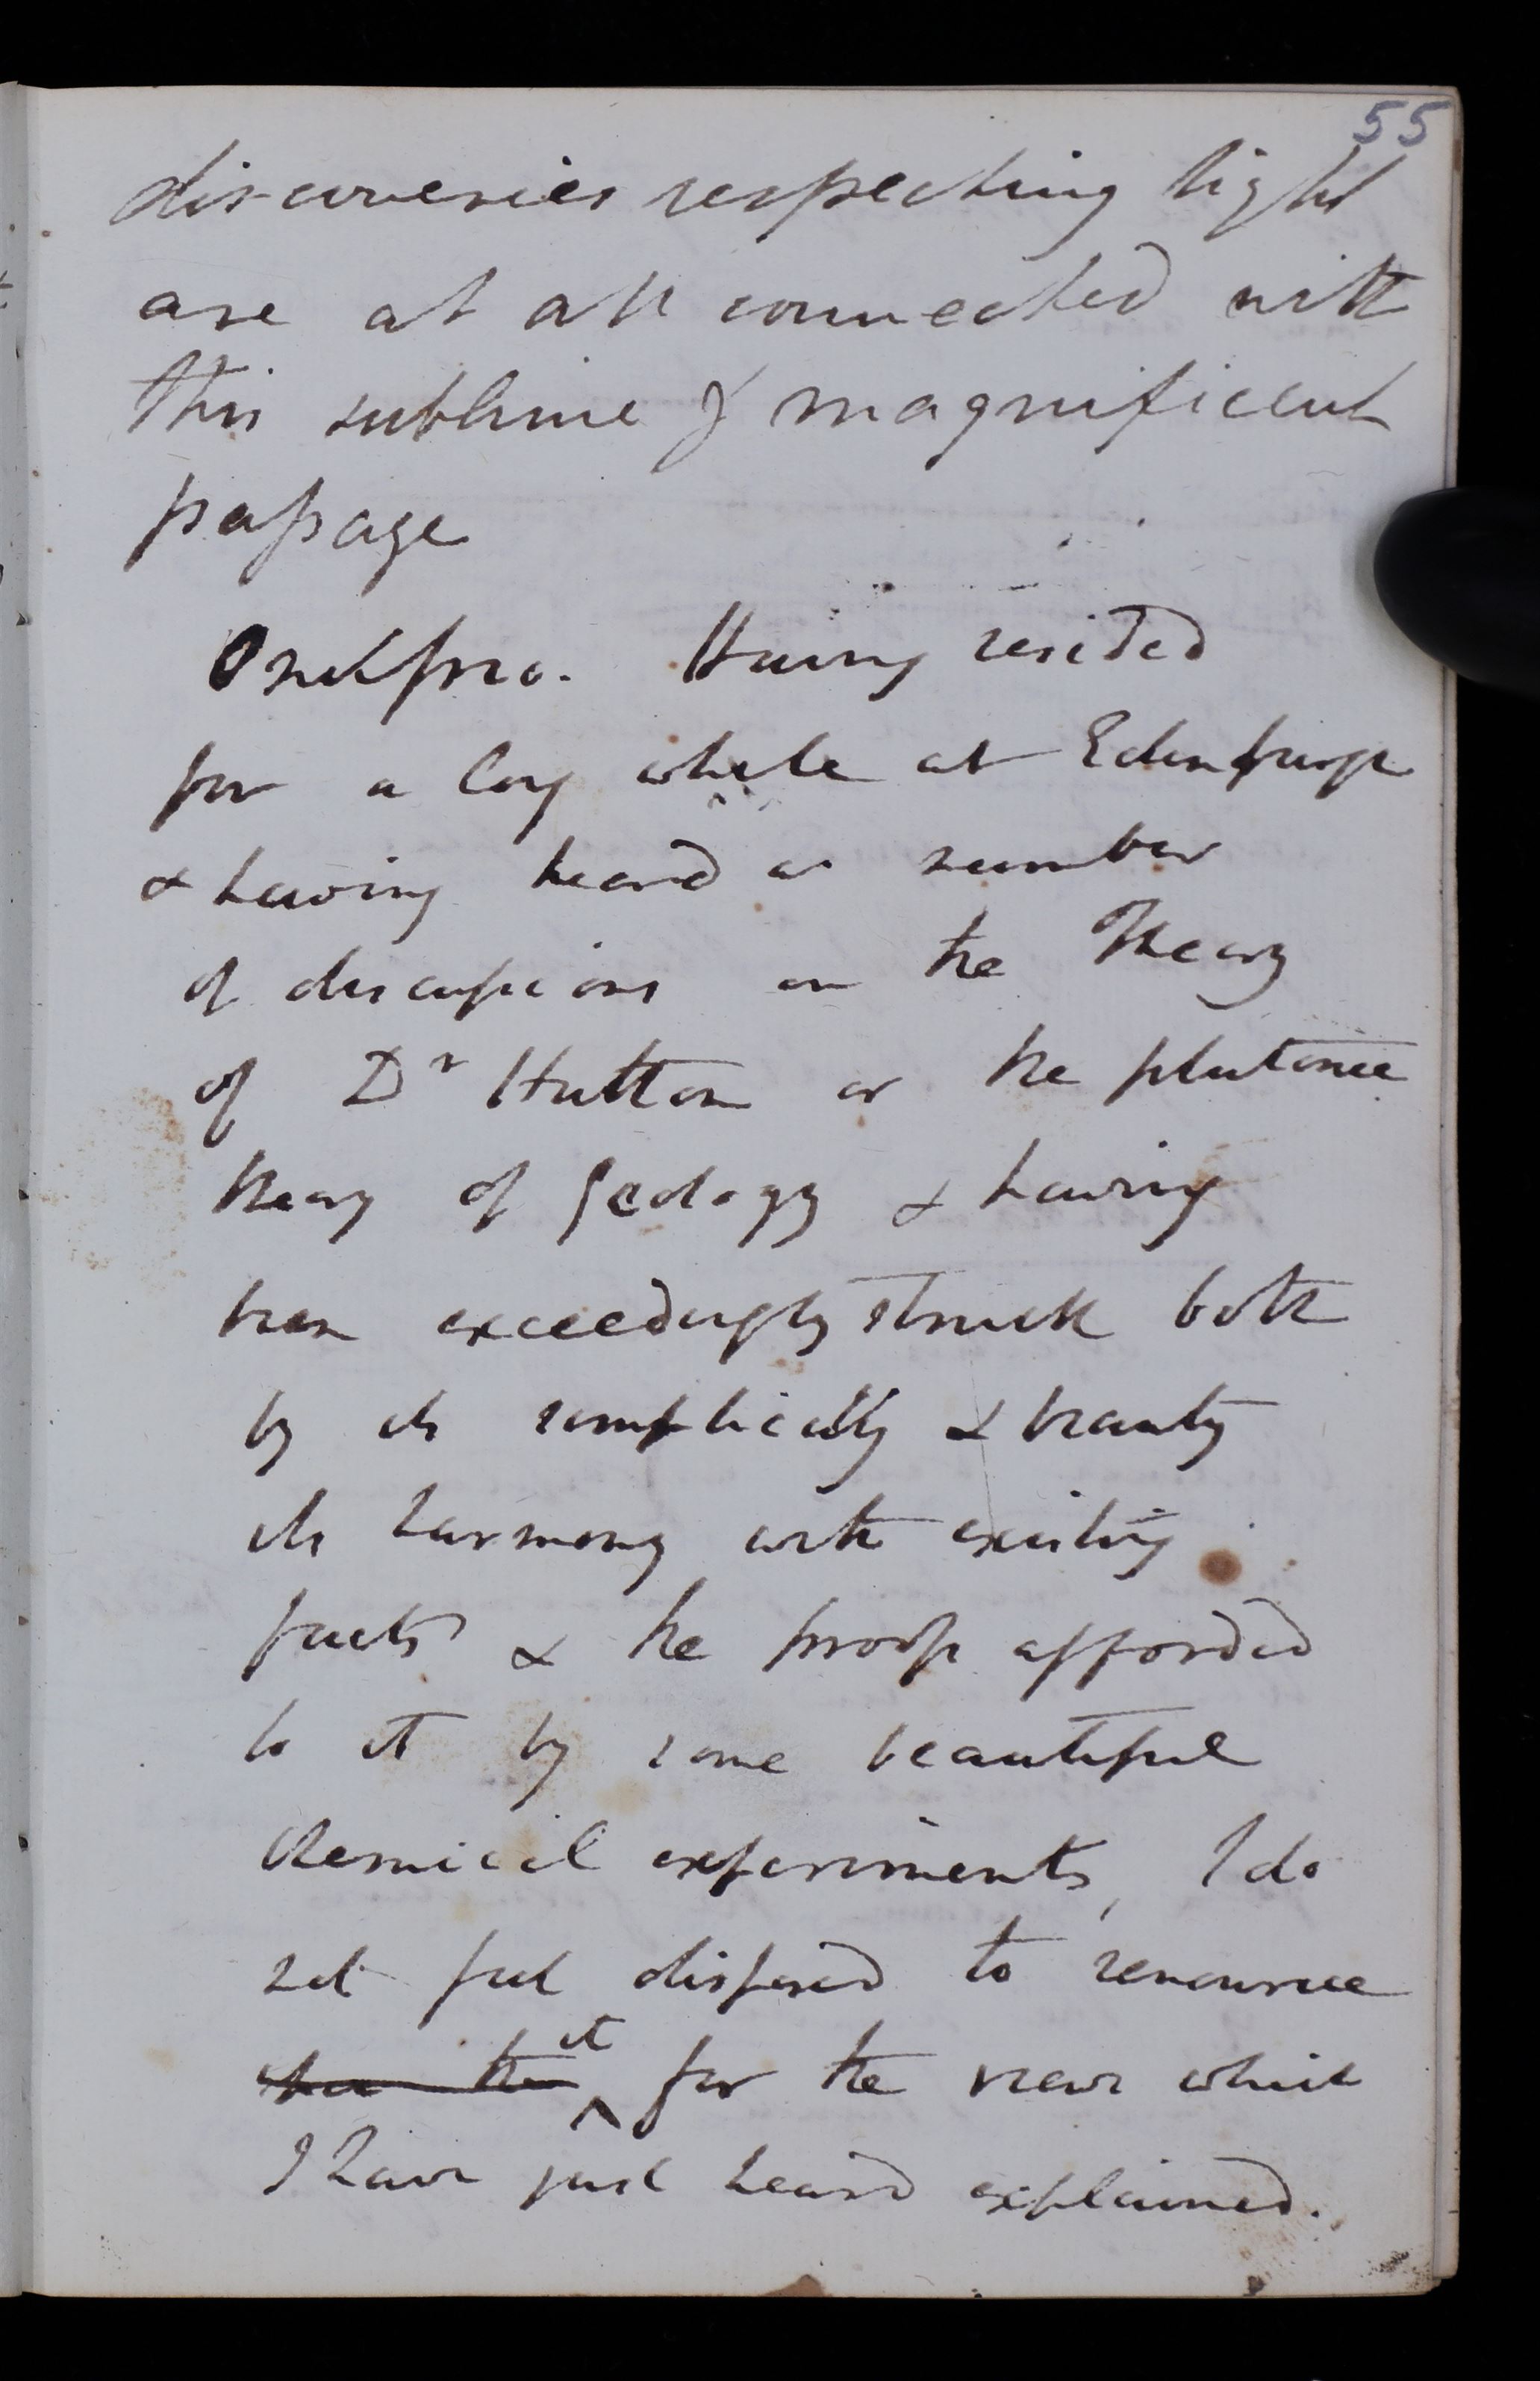 55
discoveries respecting light
are at all connected with
this sublime & magnificent
passage
Onuphrio. Having resided
for a long while at Edinburgh
& having heard a number
of discussions on the Theory
of Dr Hutton or the plutonic
theory of geology & having
been exceedingly struck both
by its simplicity & beauty
its harmony with existing
facts & the proofs afforded
to it by some beautiful
chemical experiments, I do
not feel disposed to renounce
it for the views which
I have just heard explained.